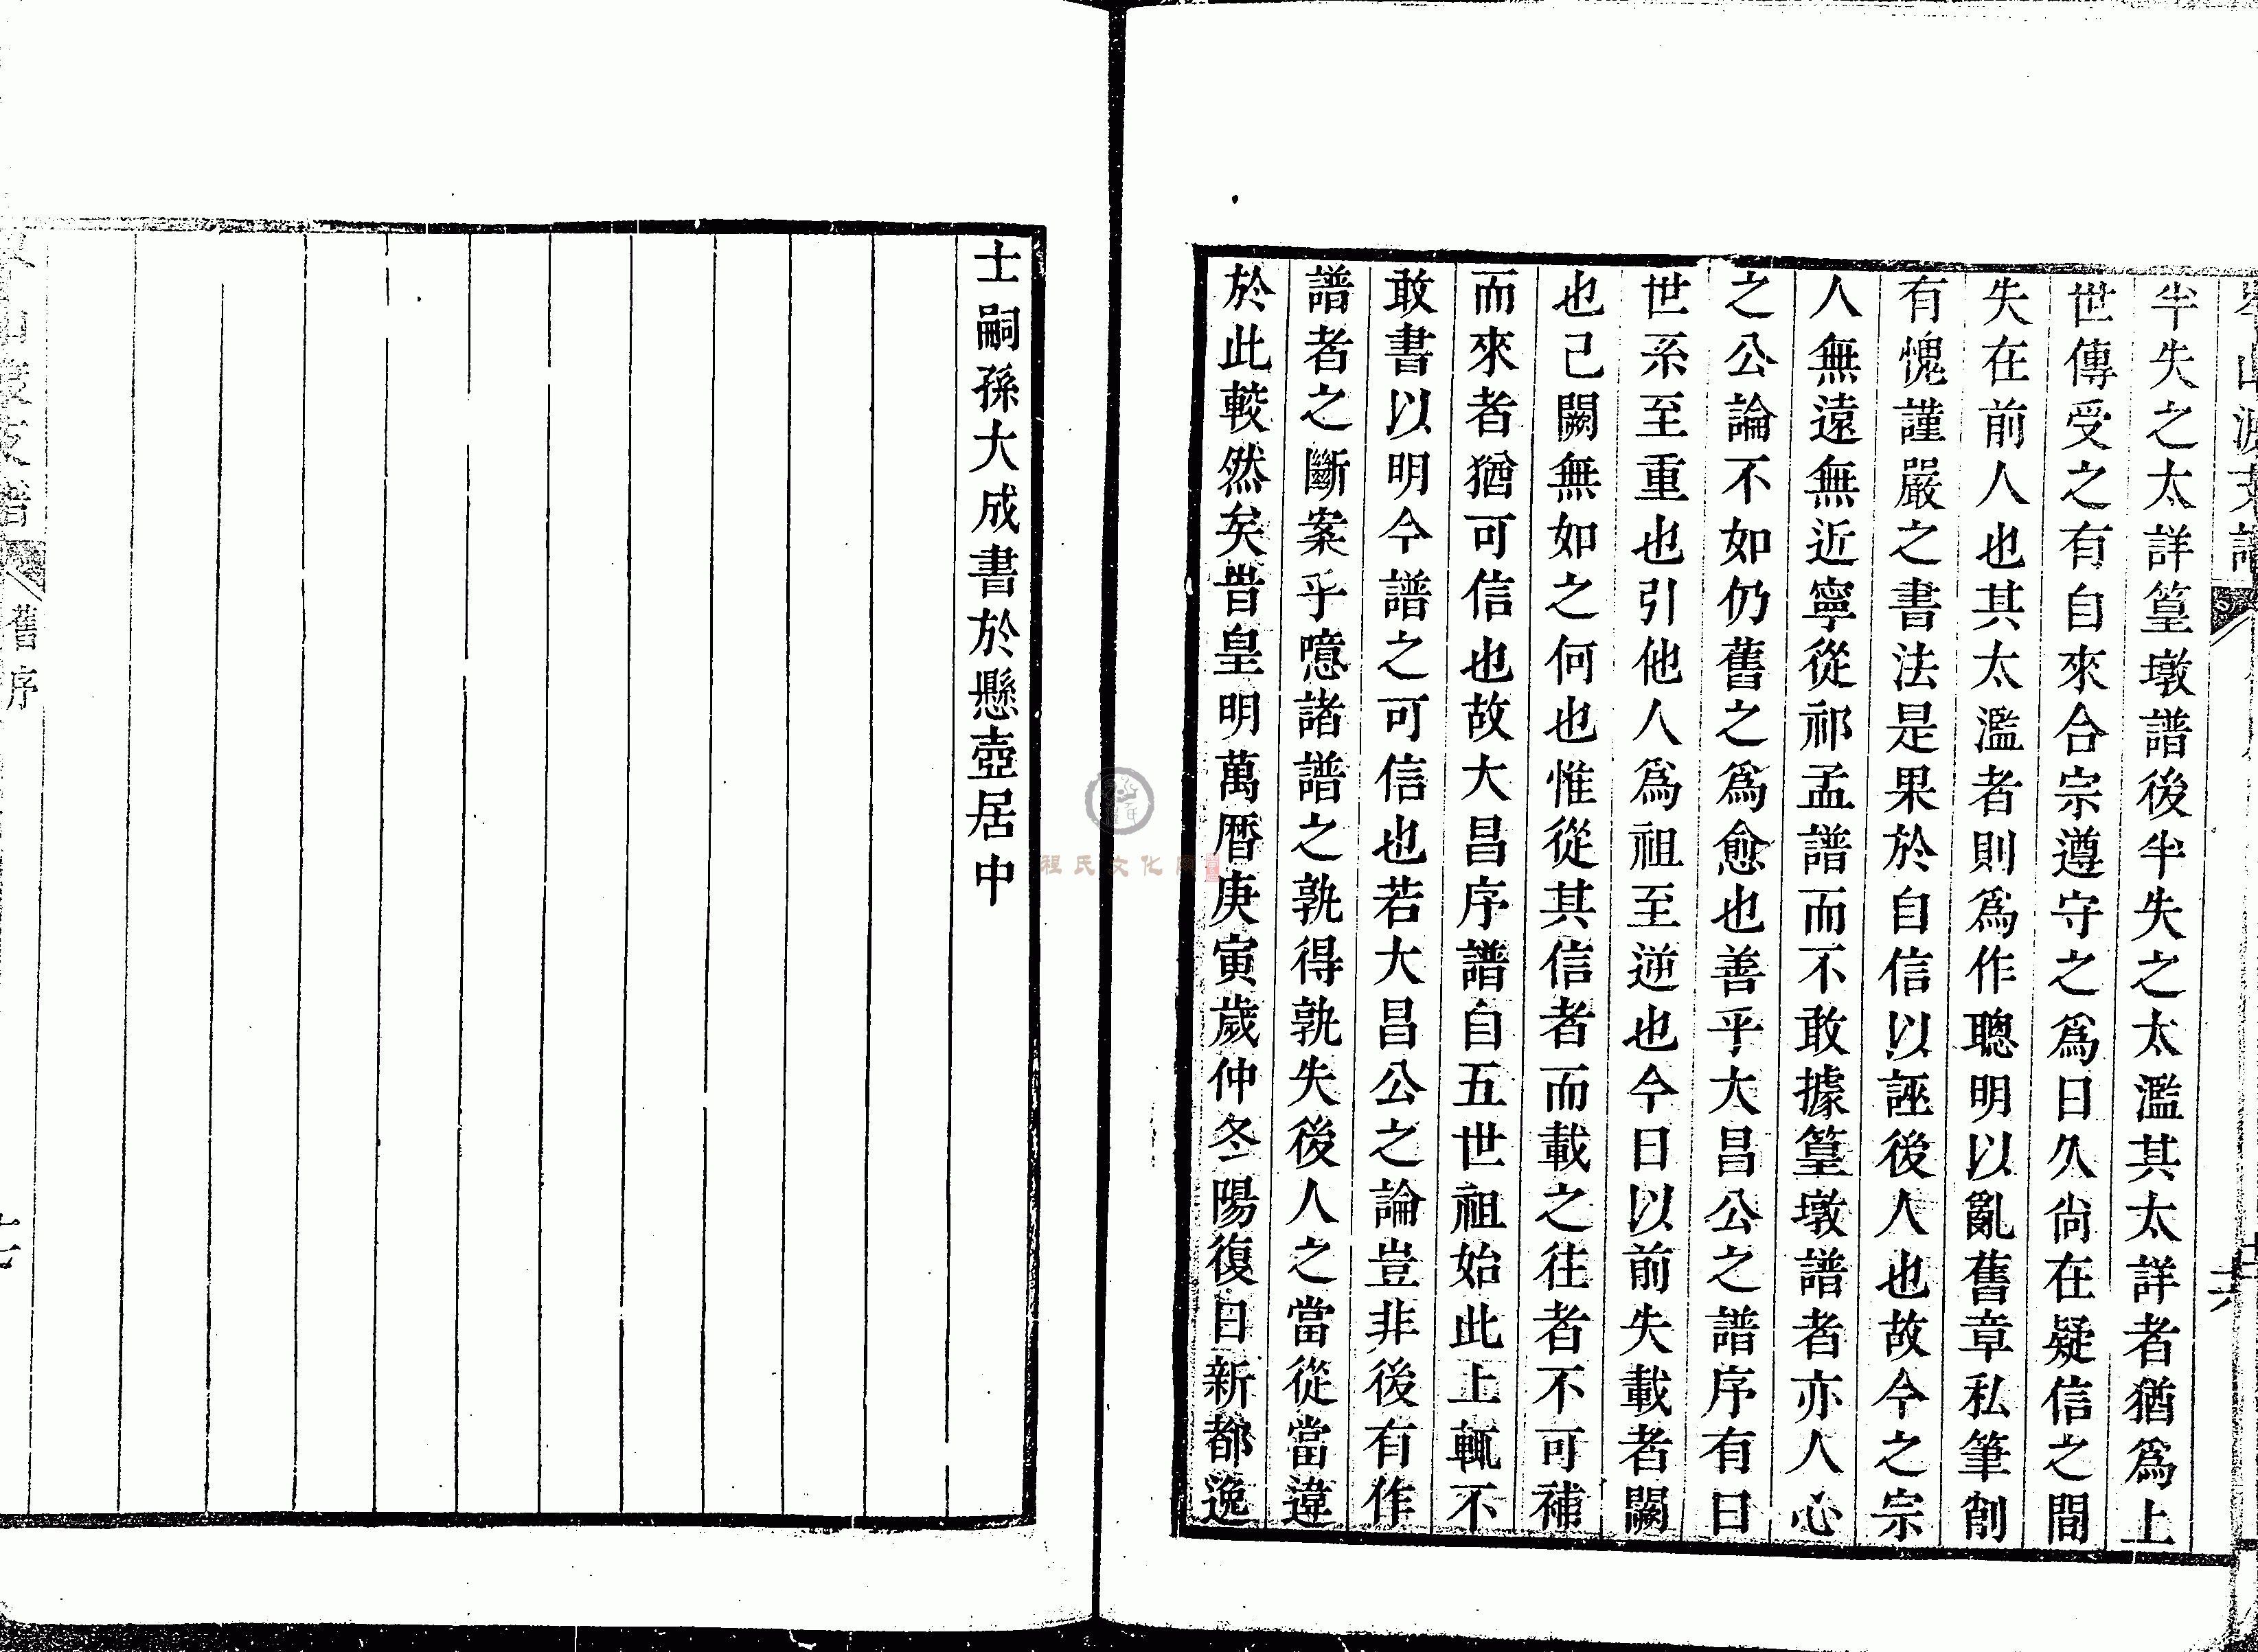 半失之太詳篁墩譜後半失之太濫其太詳者猶爲上
世傳受之有自來合宗遵守之爲日久尙在疑信之間
失在前人也其太濫者則爲作聰明以亂舊章私筆創
有愧謹嚴之書法是果於自信以誣後人也故今之宗
人無遠無近寧從祁孟譜而不敢據篁墩譜者亦人心
之公論不如仍舊之爲愈也善乎大昌公之譜序有曰
世系至重也引他人爲祖至逆也今日以前失載者闕
也己闕無如之何也惟從其信者而載之往者不可補
而來者猶可信也故大昌序譜自五世祖始此上輒不
敢書以明今譜之可信也若大昌公之論豈非後有作
譜者之斷案乎噫諸譜之孰得孰失後人之當從當違
於此較然矣昔皇明萬曆庚寅歲仲冬陽復日新都逸
士嗣孫大成書於懸壺居中
舊序
程氏文化